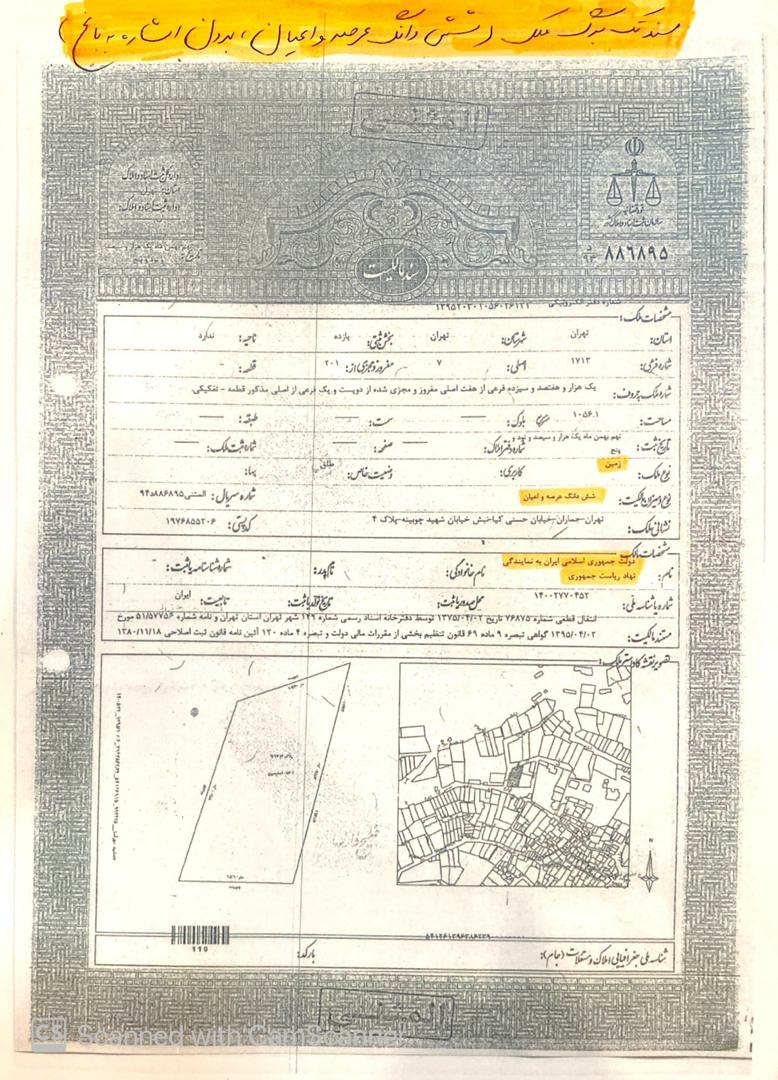 سند تک برگ ملک (شش دانگ عرصه و اعیان، بدون اشاره به باغ)
المثنی
قوه قضائیه
سازمان ثبت اسناد و املاک کشور
۸۸۶۸۹۵
سند مالکیت
شماره دفتر الکترونیکی
مشخصات ملک:
استان: تهران شهرستان: تهران بخش ثبتی: یازده ناحیه: ندارد
شماره فرعی: ۱۷۱۳ اصلی: ۷ مفروز و مجزی از: ۲۰۱ قطعه: -
شماره ملک به حروف: یک هزار و هفتصد و سیزده فرعی از هفت اصلی مفروز و مجزی شده از دویست و یک فرعی از اصلی مذکور قطعه - تفکیکی
مساحت: ۱۰۵۶.۱ بلوک: سمت: طبقه:
تاریخ ثبت: نهم بهمن ماه یک هزار و سیصد و نود و پنج شماره دفتر املاک: صفحه: شماره ثبت ملک:
نوع ملک: زمین کاربری: وضعیت خاص: طلق بها:
نوع و میزان مالکیت: شش دانگ عرصه و اعیان شماره سریال: المثنی۸۸۶۸۹۵د۹۴
نشانی ملک: تهران-جماران-خیابان حسنی کیا-نبش خیابان شهید چوبینه-پلاک ۴ کد پستی: ۱۹۷۶۸۵۵۲۰۶
مشخصات مالک:
نام: دولت جمهوری اسلامی ایران به نمایندگی نهاد ریاست جمهوری نام خانوادگی: نام پدر: شماره شناسنامه یا ثبت:
شماره یا شناسه ملی: ۱۴۰۰۲۷۷۰۴۵۲ محل صدور یا ثبت: تاریخ تولد یا ثبت: تابعیت: ایران
مستند مالکیت: انتقال قطعی شماره ۷۶۸۷۵ تاریخ ۱۳۷۵/۰۴/۰۲ توسط دفترخانه اسناد رسمی شماره ۱۴۹ شهر تهران استان تهران و نامه شماره ۵۱/۵۷۷۵۶ مورخ
۱۳۹۵/۰۴/۰۲ گواهی تبصره ۹ ماده ۶۹ قانون تنظیم بخشی از مقررات مالی دولت و تبصره ۴ ماده ۱۲۰ آئین نامه قانون ثبت اصلاحی ۱۳۸۰/۱۱/۱۸
تصویر نقشه کاداستر ملک:
N
110
بارکد:
شناسه ملی جغرافیایی املاک و مستغلات (جام):
المثنی
CS Scanned with CamScanner